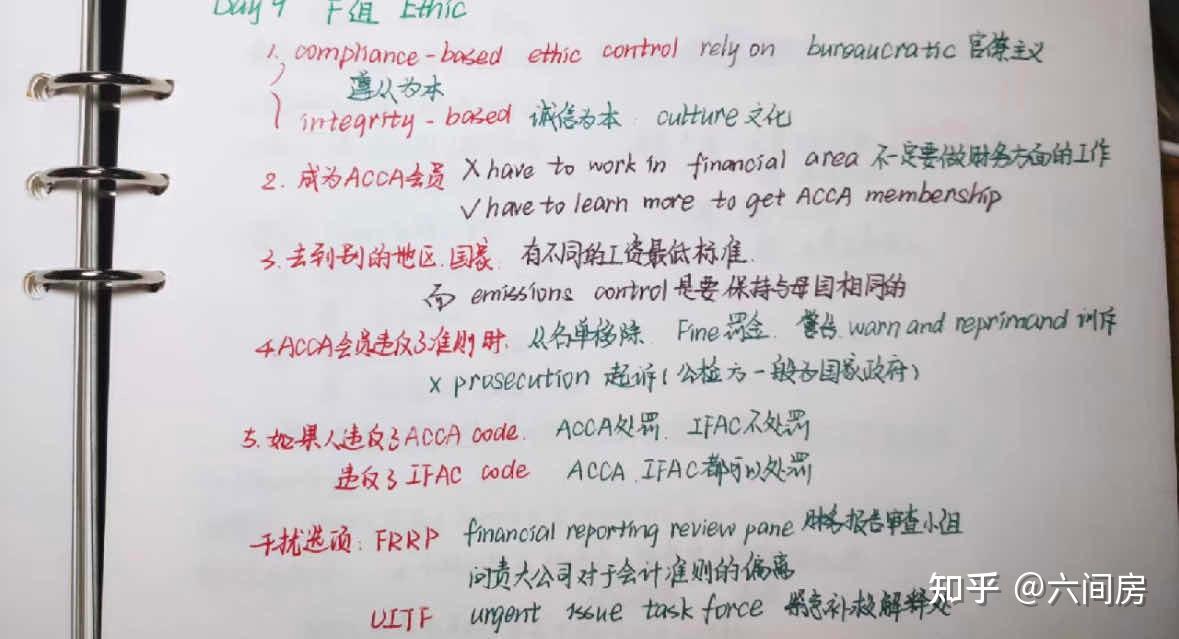 Day 9 F组 Ethic
1. compliance-based ethic control rely on bureaucratic 官僚主义
遵从为本
integrity-based 诚信为本 culture 文化
2. 成为ACCA会员 X have to work in financial area 不一定要做财务方面的工作
√ have to learn more to get ACCA membenship
3. 去到别的地区.国家. 有不同的工资最低标准.
而 emissions control 是要保持与母国相同的
4. ACCA会员违反了准则时. 从名单移除. Fine 罚金. 警告. warn and reprimand 训斥
x prosecution 起诉(公检方一般为国家政府)
5. 如果人违反了ACCA code. ACCA处罚. IFAC不处罚
违反了IFAC code ACCA.IFAC都可以处罚
干扰选项: FRRP financial reporting review pane 财务报告审查小组
问责大公司对于会计准则的偏离
UITF urgent issue task force 紧急补救解释处
知乎 @六间房